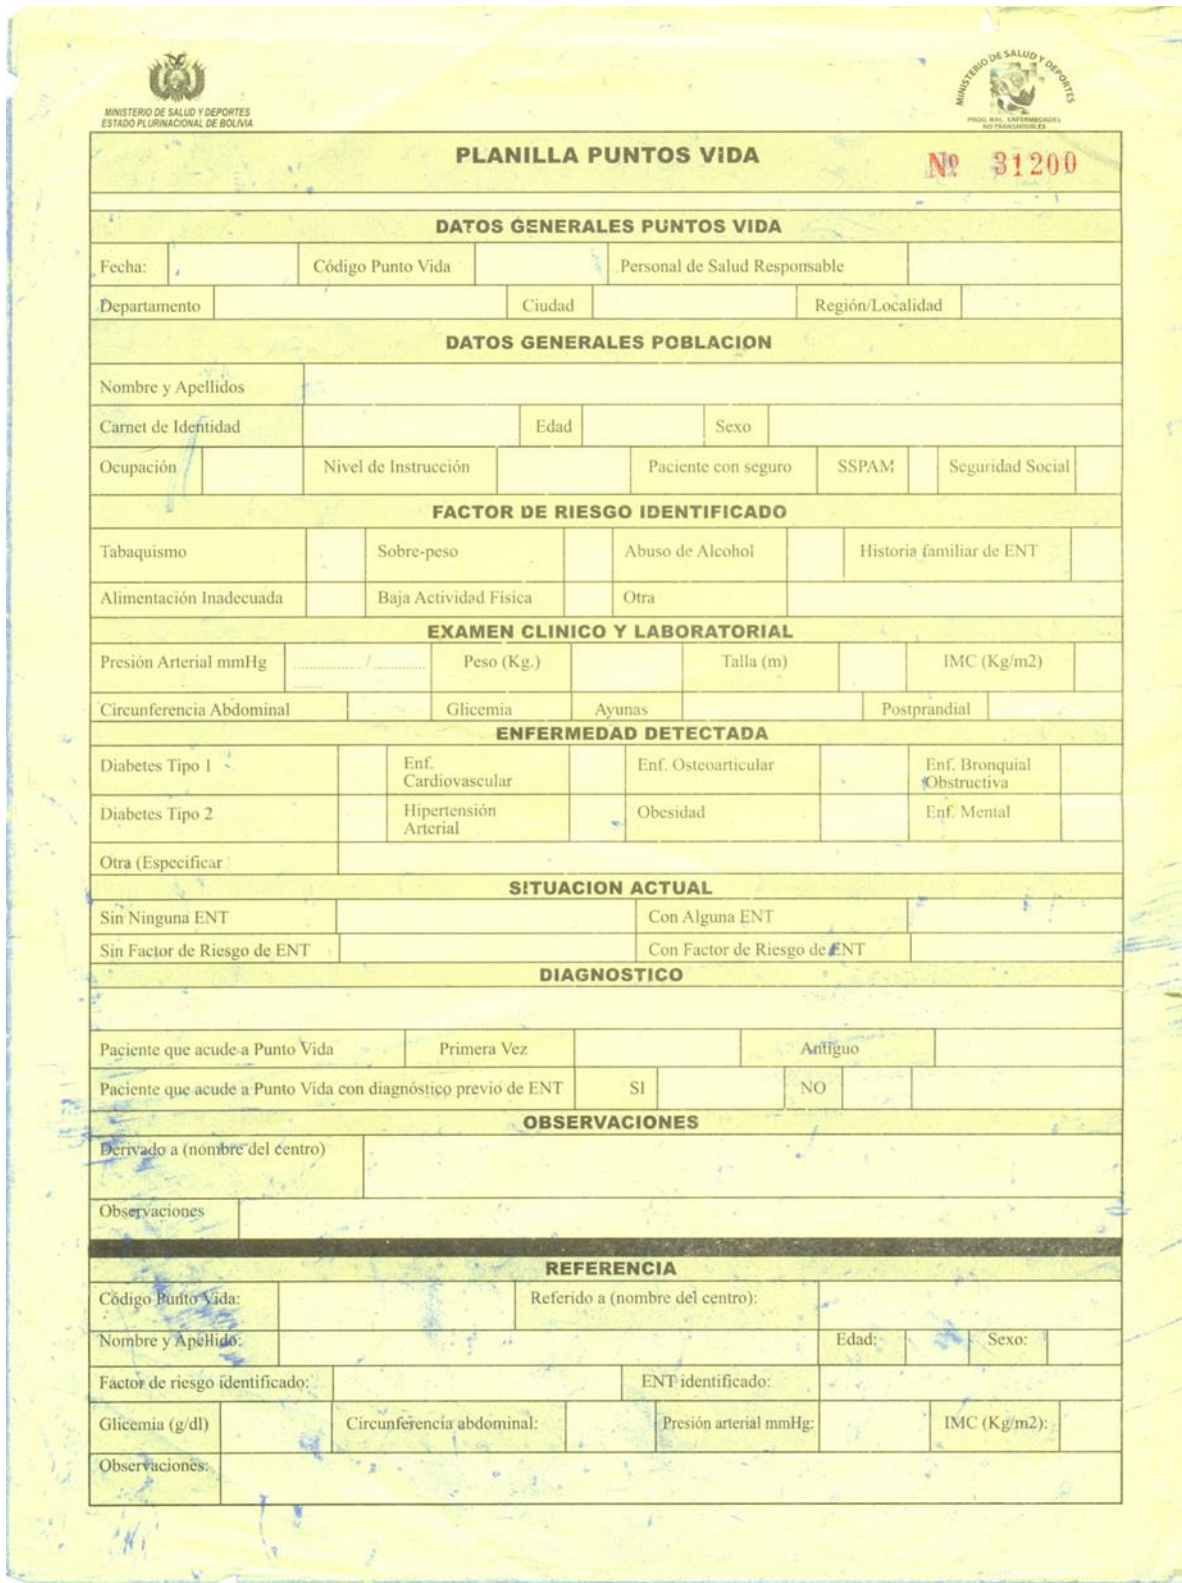 MINISTERIO DE SALUD Y DEPORTES
ESTADO PLURINACIONAL DE BOLIVIA
MINISTERIO DE SALUD Y DEPORTES
PROG. NAL. ENFERMEDADES
NO TRANSMISIBLES
PLANILLA PUNTOS VIDA
Nº 31200
DATOS GENERALES PUNTOS VIDA
Fecha: Código Punto Vida Personal de Salud Responsable
Departamento Ciudad Región/Localidad
DATOS GENERALES POBLACION
Nombre y Apellidos
Carnet de Identidad Edad Sexo
Ocupación Nivel de Instrucción Paciente con seguro SSPAM Seguridad Social
FACTOR DE RIESGO IDENTIFICADO
Tabaquismo Sobre-peso Abuso de Alcohol Historia familiar de ENT
Alimentación Inadecuada Baja Actividad Física Otra
EXAMEN CLINICO Y LABORATORIAL
Presión Arterial mmHg / Peso (Kg.) Talla (m) IMC (Kg/m2)
Circunferencia Abdominal Glicemia Ayunas Postprandial
ENFERMEDAD DETECTADA
Diabetes Tipo 1 Enf. Cardiovascular Enf. Osteoarticular Enf. Bronquial Obstructiva
Diabetes Tipo 2 Hipertensión Arterial Obesidad Enf. Mental
Otra (Especificar
SITUACION ACTUAL
Sin Ninguna ENT Con Alguna ENT
Sin Factor de Riesgo de ENT Con Factor de Riesgo de ENT
DIAGNOSTICO
Paciente que acude a Punto Vida Primera Vez Antiguo
Paciente que acude a Punto Vida con diagnóstico previo de ENT SI NO
OBSERVACIONES
Derivado a (nombre del centro)
Observaciones
REFERENCIA
Código Punto Vida: Referido a (nombre del centro):
Nombre y Apellido: Edad: Sexo:
Factor de riesgo identificado: ENT identificado:
Glicemia (g/dl) Circunferencia abdominal: Presión arterial mmHg: IMC (Kg/m2):
Observaciones: